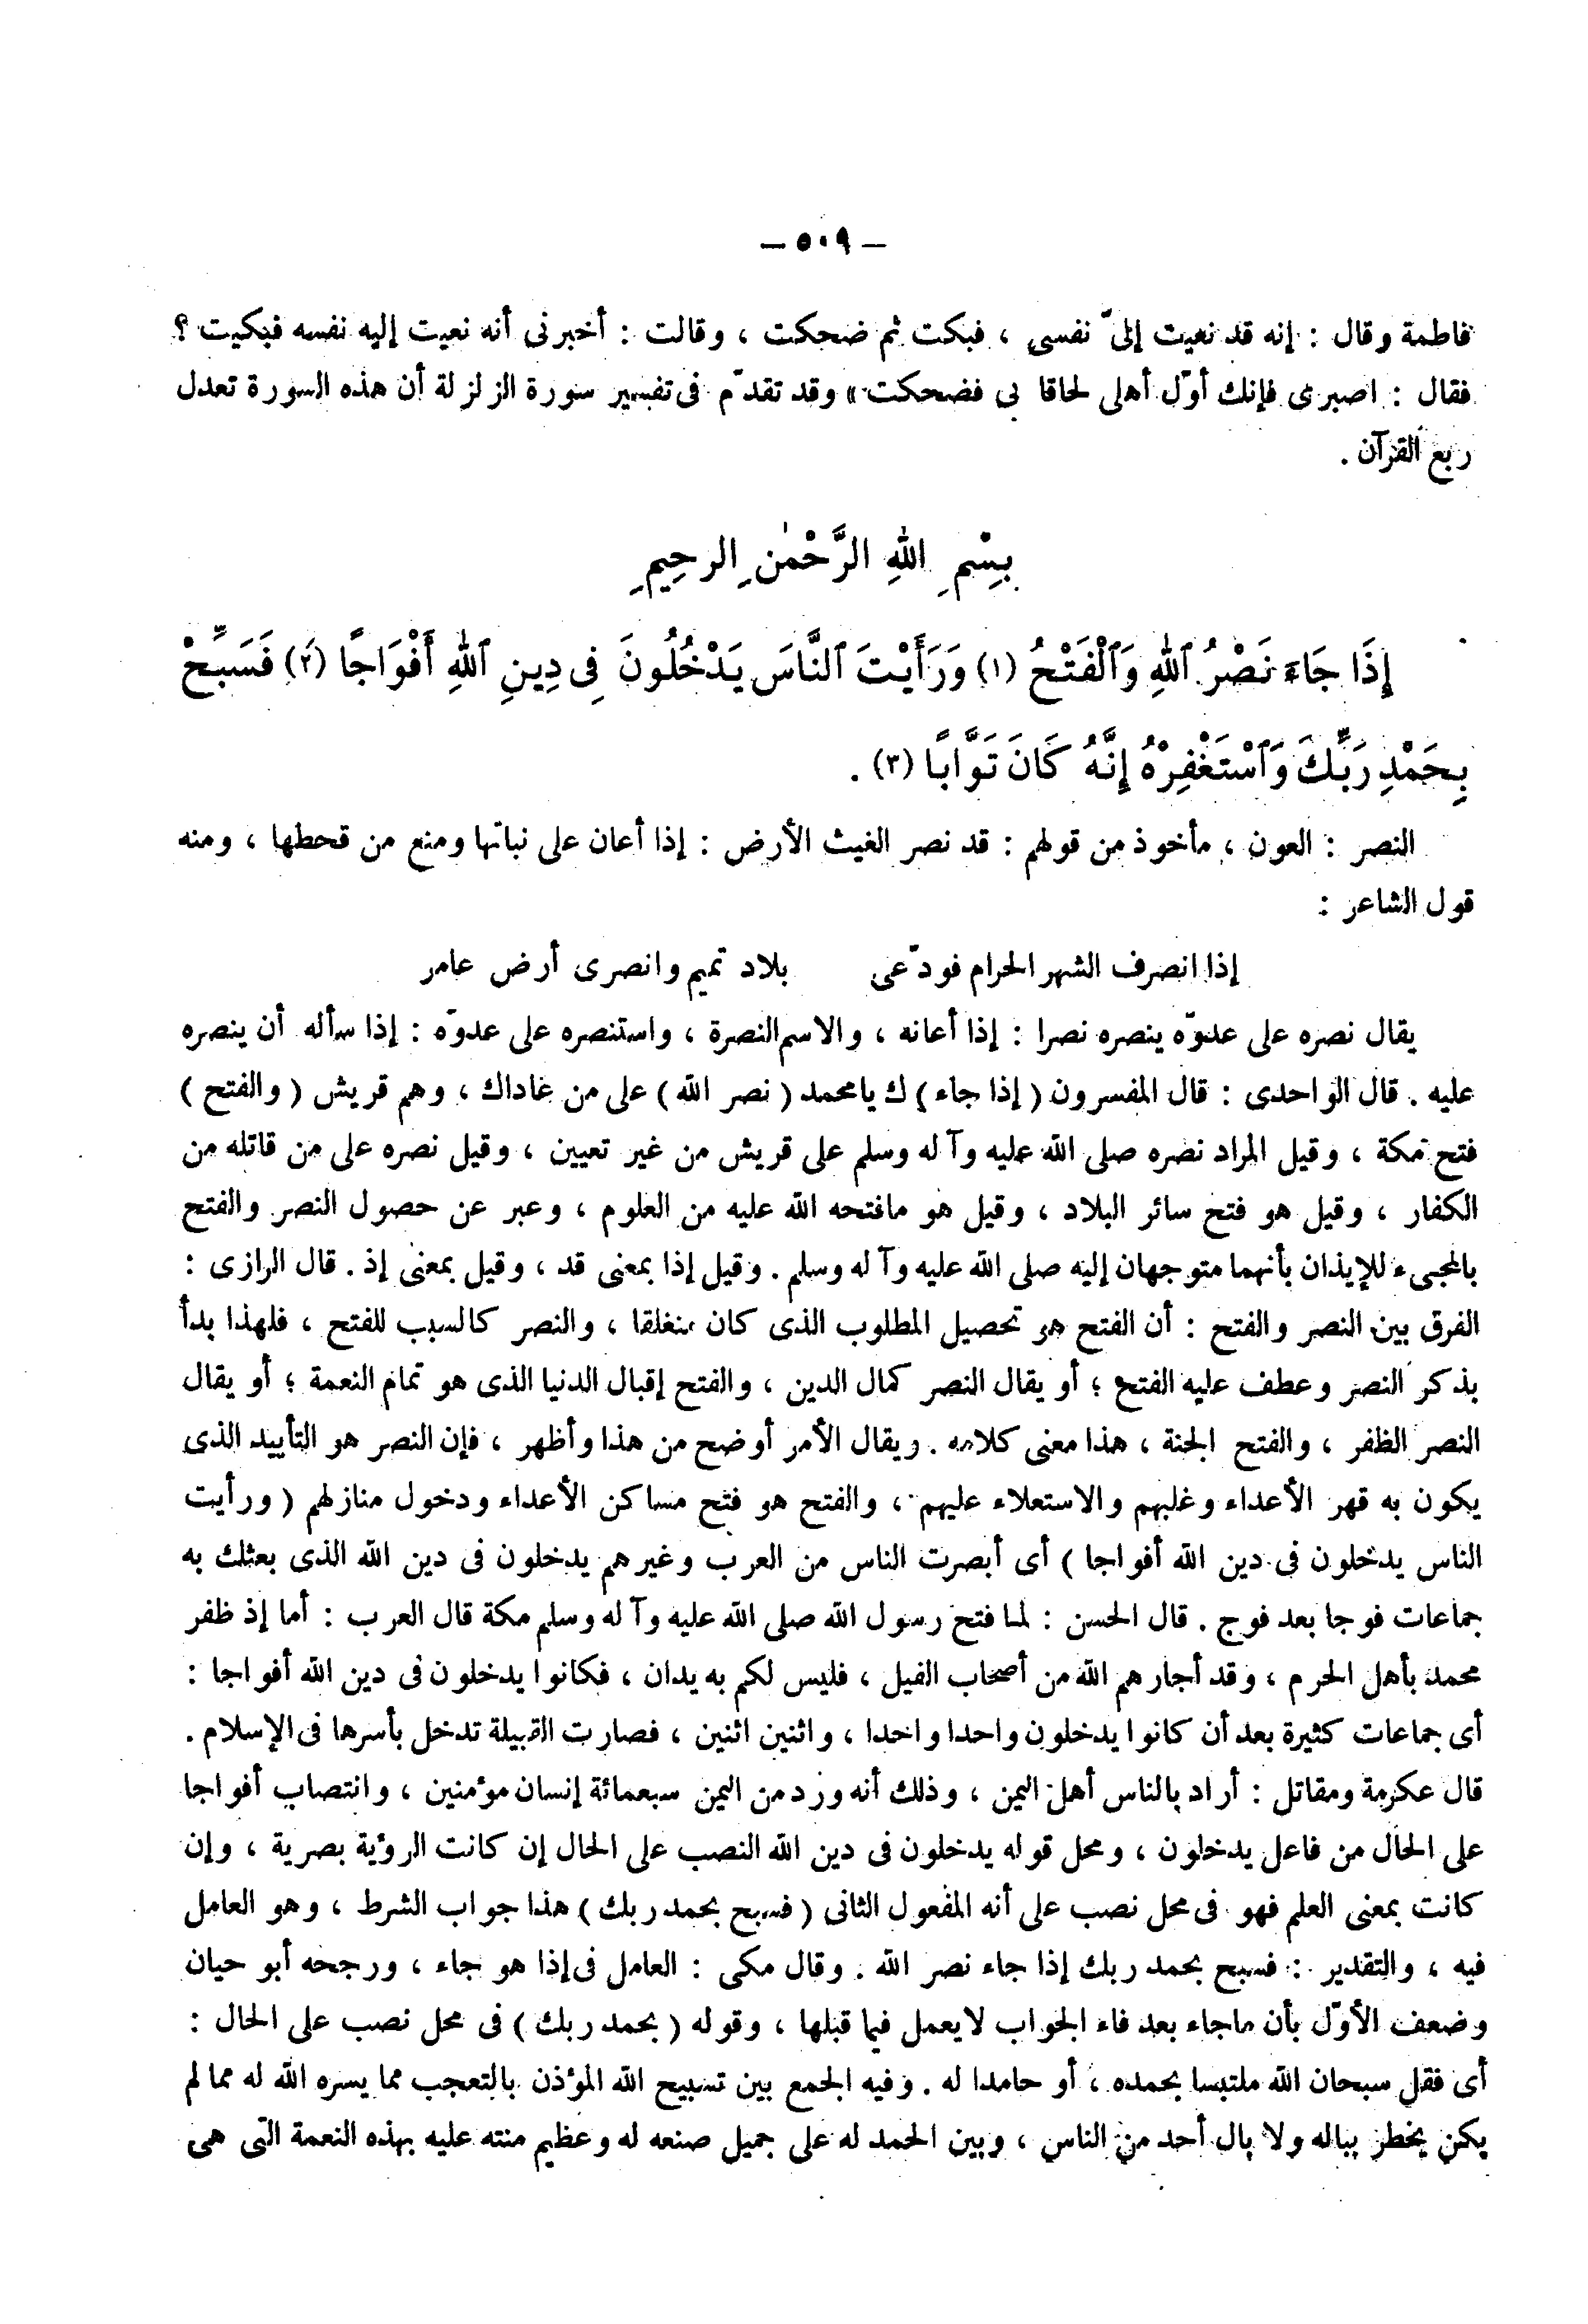 — ٥٠٩ —
فاطمة وقال : إنه قد نعيت إلىّ نفسى ، فبكت ثم ضحكت ، وقالت : أخبرنى أنه نعيت إليه نفسه فبكيت ؟
فقال : اصبرى فإنك أوّل أهلى لحاقا بى فضحكت » وقد تقدّم فى تفسير سورة الزلزلة أن هذه السورة تعدل
ربع القرآن .
بِسْمِ اللهِ الرَّحْمٰنِ الرحِيمِ
إِذَا جَاءَ نَصْرُ ٱللهِ وَٱلْفَتْحُ (١) وَرَأَيْتَ ٱلنَّاسَ يَدْخُلُونَ فِى دِينِ ٱللهِ أَفْوَاجًا (٢) فَسَبِّحْ
بِحَمْدِ رَبِّكَ وَٱسْتَغْفِرْهُ إِنَّهُ كَانَ تَوَّابًا (٣) .
النصر : العون ، مأخوذ من قولهم : قد نصر الغيث الأرض : إذا أعان على نباتها ومنع من قحطها ، ومنه
قول الشاعر :
إذا انصرف الشهر الحرام فودّعى بلاد تميم وانصرى أرض عامر
يقال نصره على عدوّه ينصره نصرا : إذا أعانه ، والاسم النصرة ، واستنصره على عدوّه : إذا سأله أن ينصره
عليه . قال الواحدى : قال المفسرون ( إذا جاء ) ك يامحمد ( نصر الله ) على من عاداك ، وهم قريش ( والفتح )
فتح مكة ، وقيل المراد نصره صلى الله عليه وآله وسلم على قريش من غير تعيين ، وقيل نصره على من قاتله من
الكفار ، وقيل هو فتح سائر البلاد ، وقيل هو مافتحه الله عليه من العلوم ، وعبر عن حصول النصر والفتح
بالمجىء للإيذان بأنهما متوجهان إليه صلى الله عليه وآله وسلم . وقيل إذا بمعنى قد ، وقيل بمعنى إذ . قال الرازى :
الفرق بين النصر والفتح : أن الفتح هو تحصيل المطلوب الذى كان منغلقا ، والنصر كالسبب للفتح ، فلهذا بدأ
بذكر النصر وعطف عليه الفتح ؛ أو يقال النصر كمال الدين ، والفتح إقبال الدنيا الذى هو تمام النعمة ؛ أو يقال
النصر الظفر ، والفتح الجنة ، هذا معنى كلامه . ويقال الأمر أوضح من هذا وأظهر ، فإن النصر هو التأييد الذى
يكون به قهر الأعداء وغلبهم والاستعلاء عليهم ، والفتح هو فتح مساكن الأعداء ودخول منازلهم ( ورأيت
الناس يدخلون فى دين الله أفواجا ) أى أبصرت الناس من العرب وغيرهم يدخلون فى دين الله الذى بعثك به
جماعات فوجا بعد فوج . قال الحسن : لما فتح رسول الله صلى الله عليه وآله وسلم مكة قال العرب : أما إذ ظفر
محمد بأهل الحرم ، وقد أجارهم الله من أصحاب الفيل ، فليس لكم به يدان ، فكانوا يدخلون فى دين الله أفواجا :
أى جماعات كثيرة بعد أن كانوا يدخلون واحدا واحدا ، واثنين اثنين ، فصارت القبيلة تدخل بأسرها فى الإسلام .
قال عكرمة ومقاتل : أراد بالناس أهل اليمن ، وذلك أنه ورد من اليمن سبعمائة إنسان مؤمنين ، وانتصاب أفواجا
على الحال من فاعل يدخلون ، ومحل قوله يدخلون فى دين الله النصب على الحال إن كانت الرؤية بصرية ، وإن
كانت بمعنى العلم فهو فى محل نصب على أنه المفعول الثانى ( فسبح بحمد ربك ) هذا جواب الشرط ، وهو العامل
فيه ، والتقدير : فسبح بحمد ربك إذا جاء نصر الله . وقال مكى : العامل فى إذا هو جاء ، ورجحه أبو حيان
وضعف الأوّل بأن ماجاء بعد فاء الجواب لايعمل فيما قبلها ، وقوله ( بحمد ربك ) فى محل نصب على الحال :
أى فقل سبحان الله ملتبسا بحمده ، أو حامدا له . وفيه الجمع بين تسبيح الله المؤذن بالتعجب مما يسره الله له مما لم
يكن يخطر بباله ولا بال أحد من الناس ، وبين الحمد له على جميل صنعه له وعظيم منته عليه بهذه النعمة التى هى